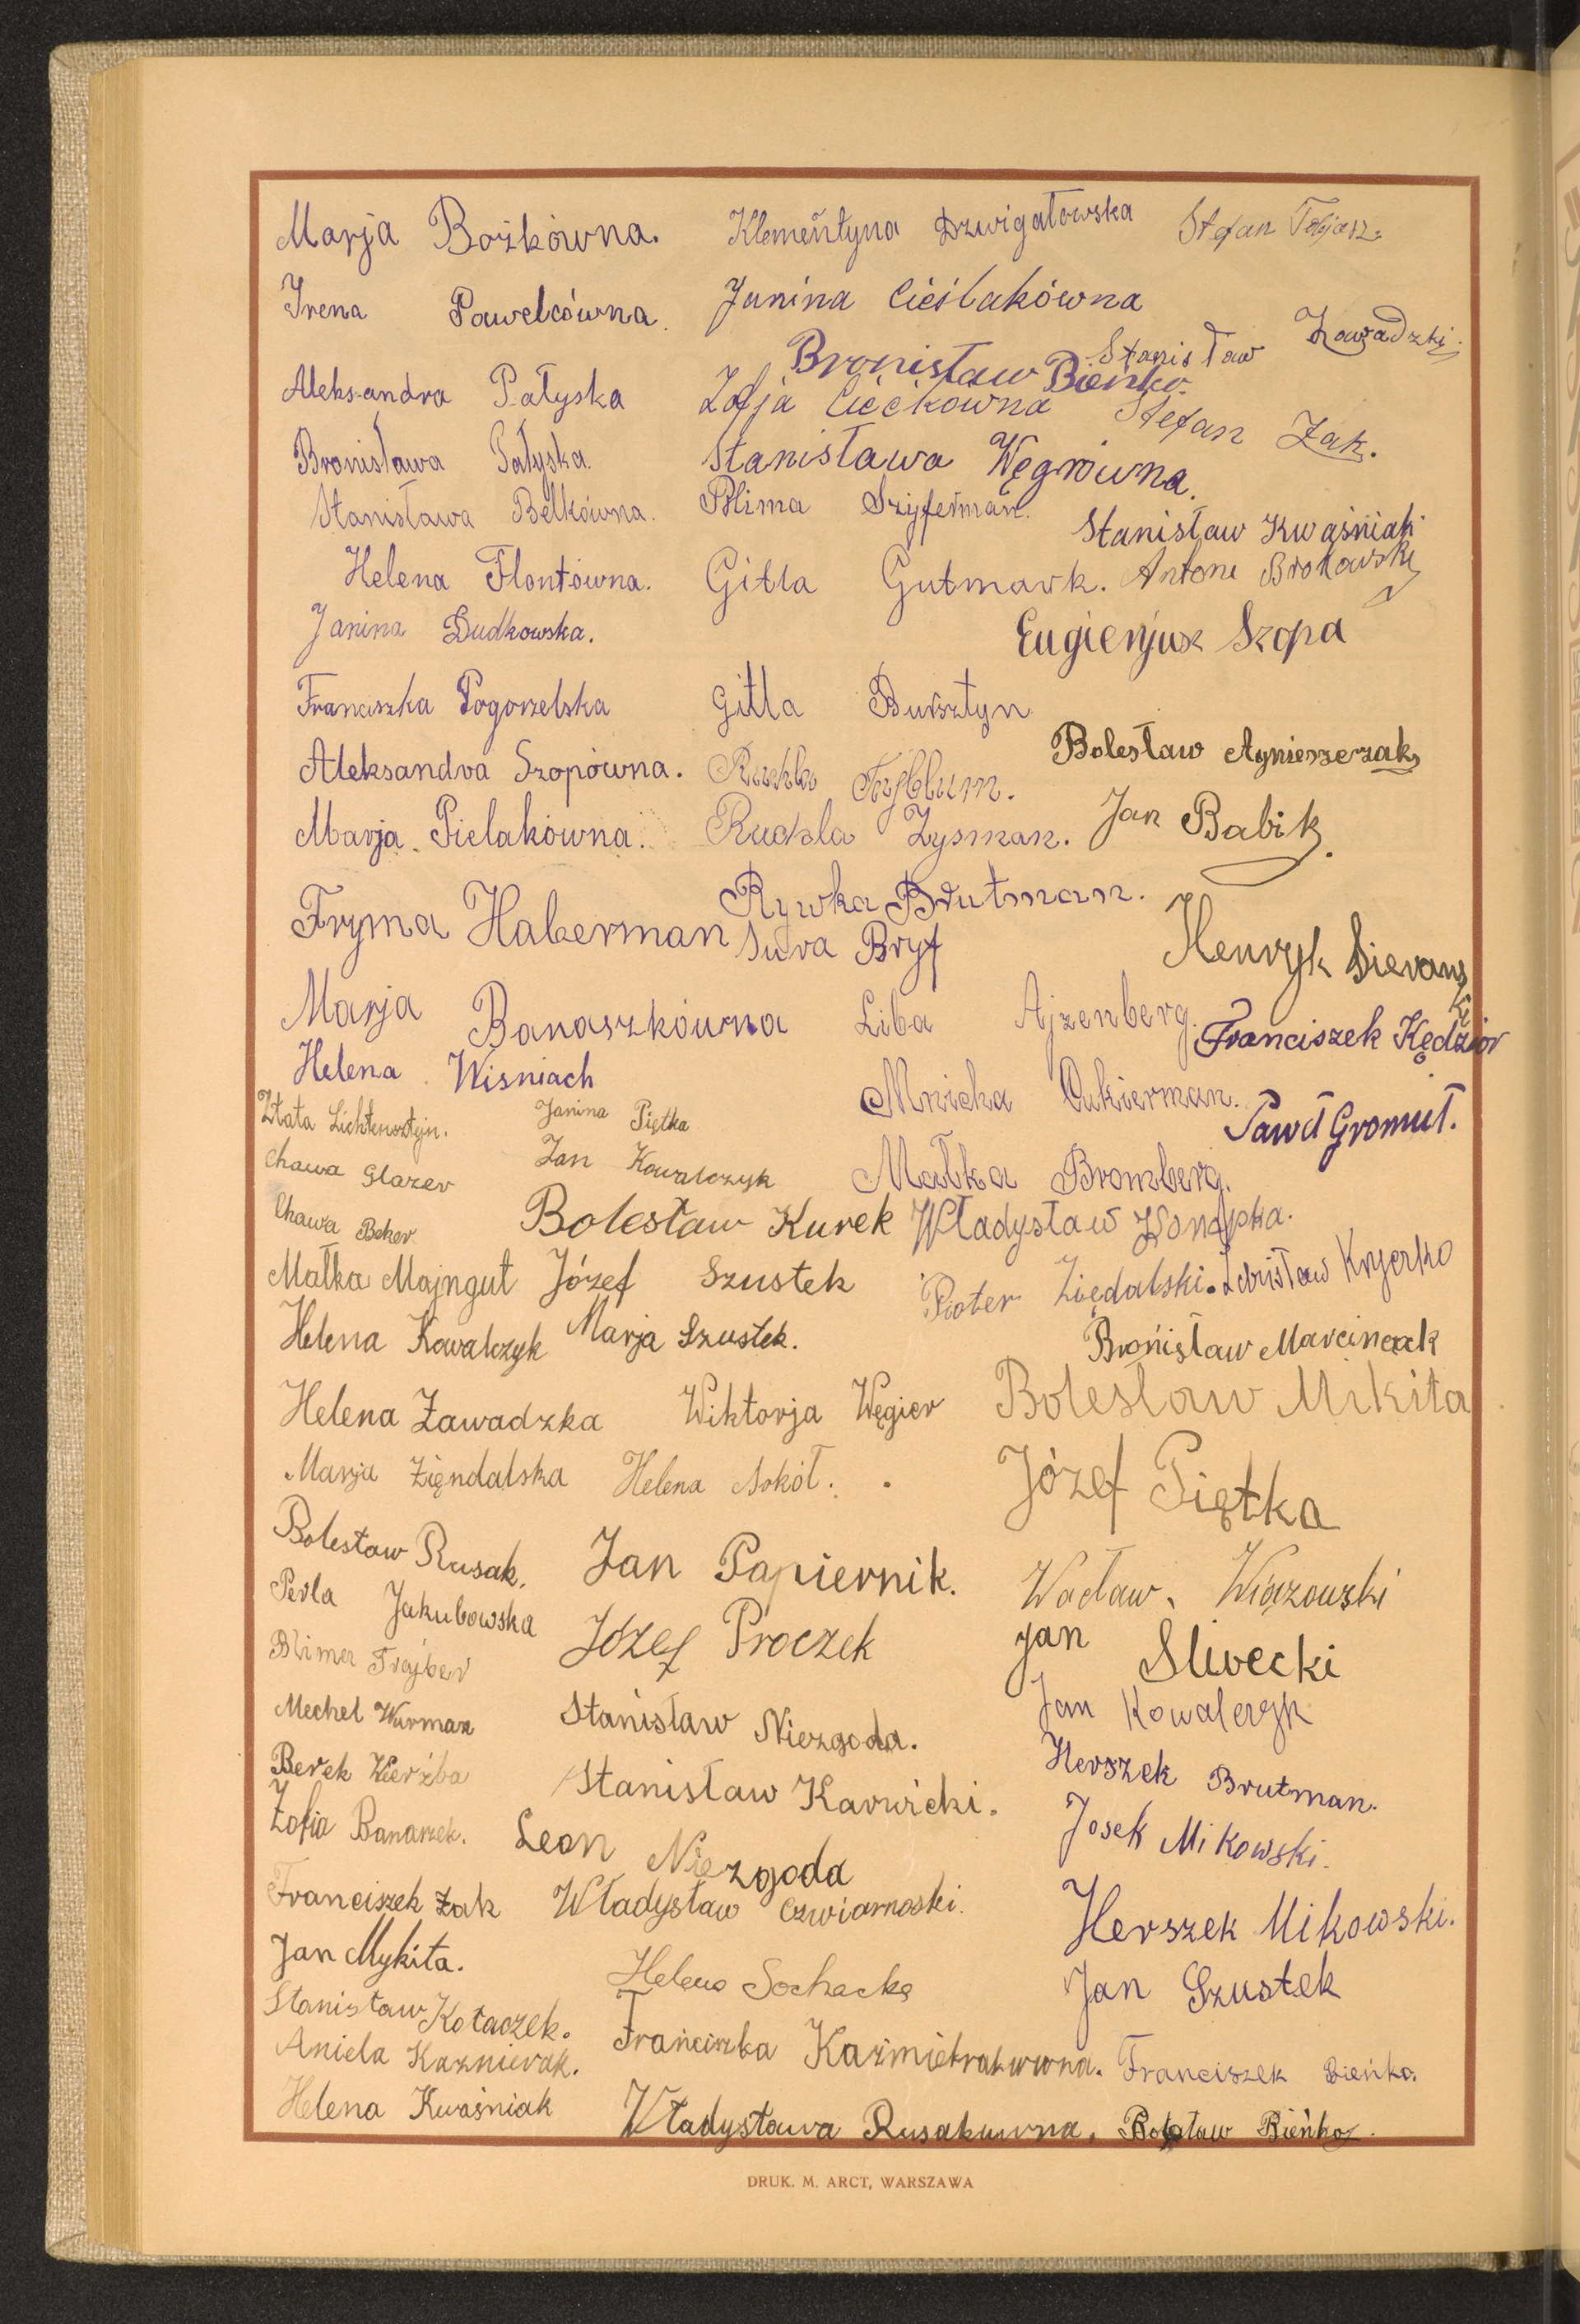 Marja Bożkówna. Klementyna Dzwigałowska Stefan Tobjasz.
Irena Pawelcówna. Janina Cieślakówna
Stanisław Zawadzki.
Bronisław Bieńko.
Aleksandra Pałyska Zofja Ciećkówna Stefan Żak.
Bronisława Pałyska. Stanisława Węgrówna.
Stanisława Belkówna. Blima Szyferman.
Stanisław Kwaśniak
Helena Flontówna. Gitla Gutmark. Antoni
Janina Dudkowska. Eugienjusz Szopa
Franciszka Pogorzelska Gitla Bursztyn
Aleksandra Szopówna. Ruchla Bolesław Agnieszczak
Marja Pielakówna. Ruchla Zysman. Jan Babik.
Rywka Brutman.
Fryma Haberman Sura Bryf
Henryk Sieranski
Marja Banaszkówna Liba Ajzenberg.
Franciszek Kędzior
Helena Wisniach Mnicha Cukierman.
Złata Lichtensztejn. Janina Piętka Paweł Gromuł.
Chawa Glazer Jan Kowalczyk Małka Bromberg.
Chawa Beker Bolesław Kurek Władysław Konopka.
Małka Majngut Józef Szustek Pioter Ziędalski. Zdzisław
Helena Kowalczyk Marja Szustek. Bronisław Marcinczak
Helena Zawadzka Wiktorja Węgier Boleslaw Mikita
Marja Zięndalska Helena Sokół. Józef Piętka
Bolesław Rusak. Jan Papiernik. Wacław Wiązowski
Perla Jakubowska Józef Proczek Jan Slivecki
Blima Trajber
Mechel Wurman Stanisław Niezgoda. Jan Kowalczyk
Berek Wierzba Stanisław Karwicki. Herszek Brutman.
Zofia Banaszek. Leon Niezgoda Josek Mikowski.
Franciszek Żak Władysław Czwiarnoski. Herszek Mikowski.
Jan Mykita. Helena Sochacka Jan Szustek
Stanisław Kołaczek.
Aniela Kaznierak. Franciszka Kaźmierakuwna. Franciszek Bieńko.
Helena Kwaśniak Władysława Rusakuwna. Bolesław Bieńko.
DRUK. M. ARCT, WARSZAWA